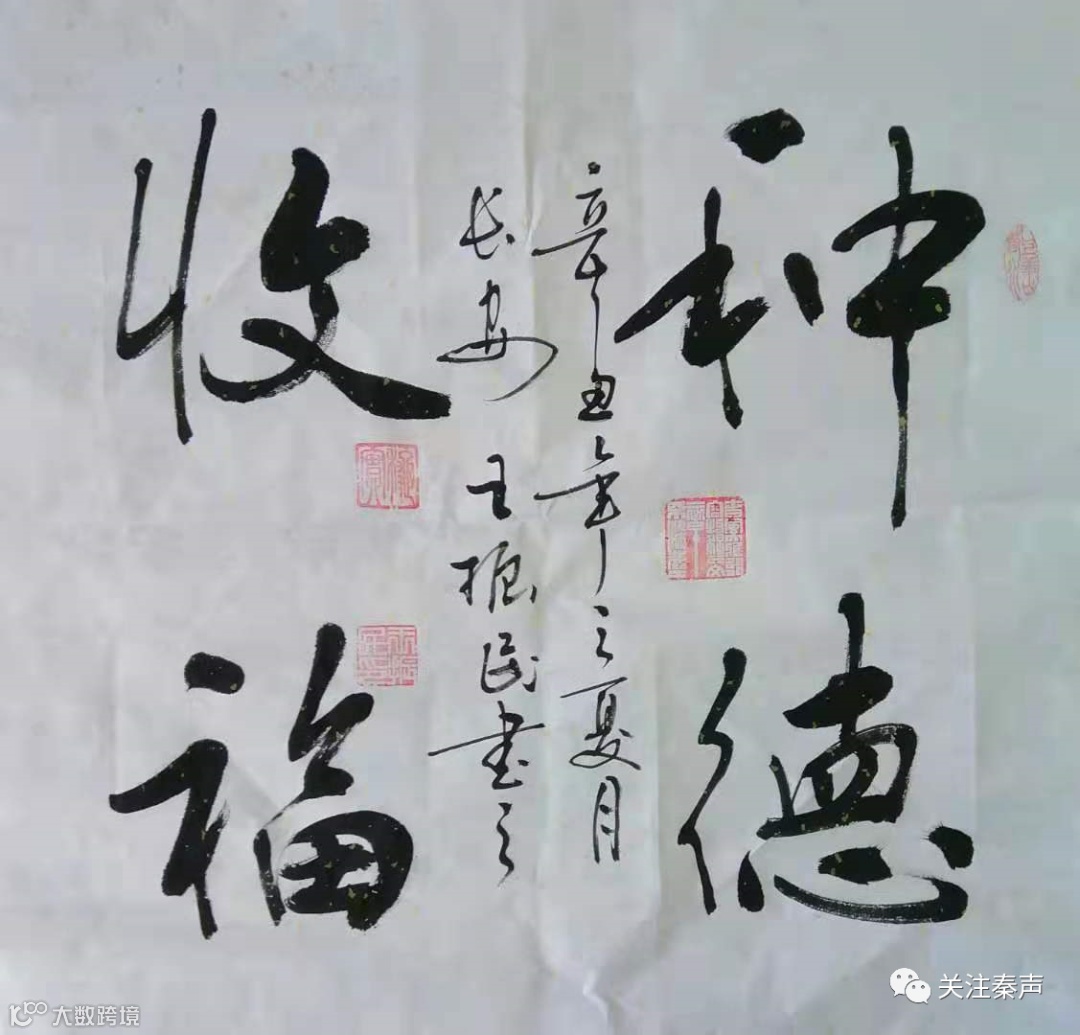 种德
收福
辛丑年之夏月
长安王振民书之
关注秦声
大数跨境